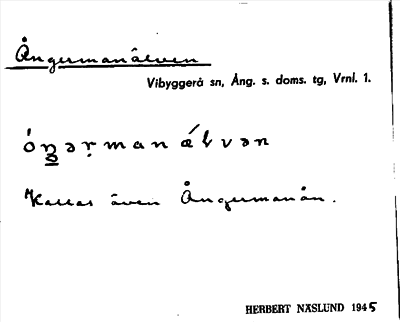 Ångermanälven
Vibyggerå sn, Ång. s. doms. tg, Vrnl. 1.
óŋəṛmanǽlvən
Kallas även Ångermanån.
HERBERT NÄSLUND 1945